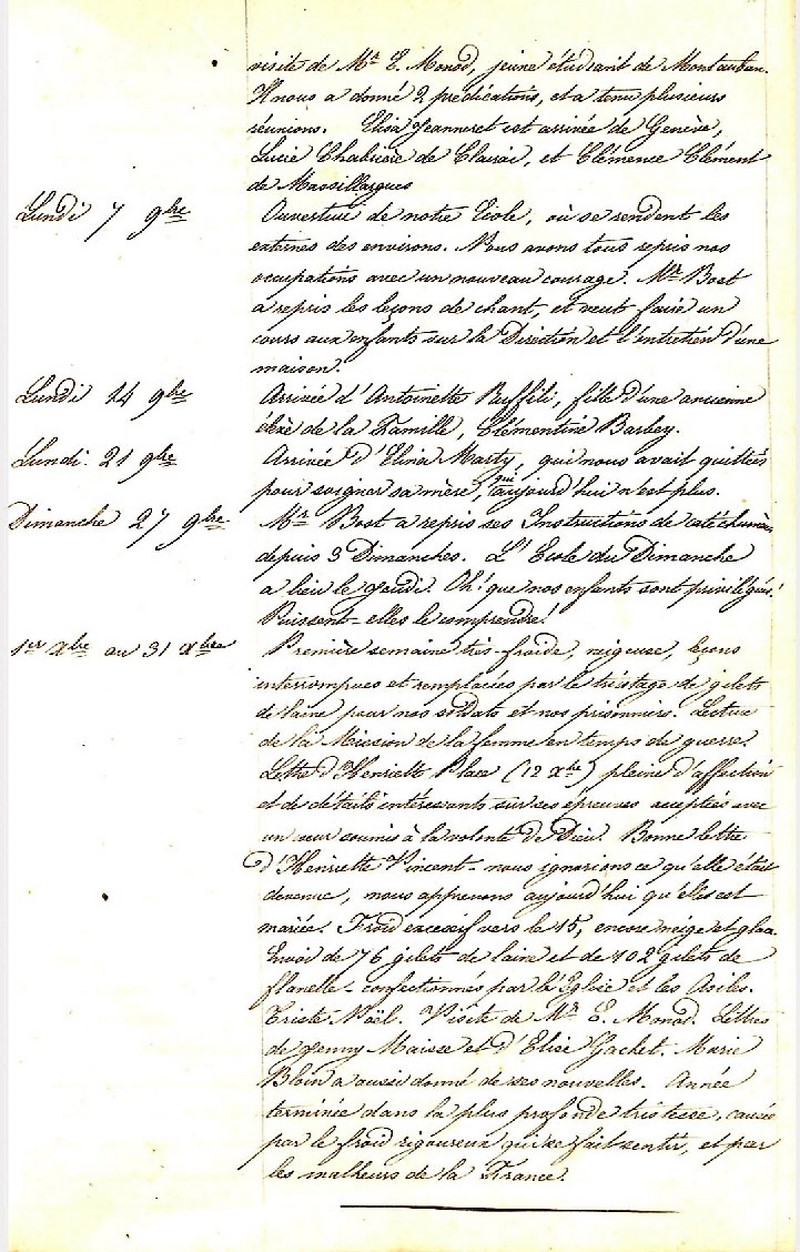 visite de Mr E. Monod, jeune étudiant de Montauban.
Il nous a donné 2 prédications, et a tenu plusieurs
réunions. Elisa Jeanneret est arrivée de Genève,
Lucie Chabrière de Clairac, et Clémence Clément
de Massillargues
Lundi 7 9bre Ouverture de notre Ecole, où se rendent les
externes des environs. Nous avons tous repris nos
occupations avec un nouveau courage. Mr Bost
a repris les leçons de chant, et veut faire un
cours aux enfants sur la Direction et l'entretien d'une
maison.
Lundi 14 9bre Arrivée d'Antoinette Buffile, fille d'une ancienne
élève de la Famille, Clémentine Barbey.
Lundi. 21 9bre Arrivée d'Elina Marty, qui nous avait quittées
pour soigner sa mère, qui aujourd'hui n'est plus.
Dimanche 27 9bre Mr Bost a repris ses Instructions de catéchumènes
depuis 3 Dimanches. L'Ecole du Dimanche
a lieu le Jeudi. Oh! que nos enfants sont privilégiés!
Puissent-elles le comprendre!
1er Xbre au 31 Xbre Première semaine très-froide, neigeuse, leçons
interrompues et remplacées par le tricotage de gilets
de laine pour nos soldats et nos prisonniers. Lecture
de la Mission de la femme en temps de guerre.
Lettre d'Henriette Place (12 Xbre) pleine d'affection
et de détails intéressants sur ses épreuves acceptées avec
un cœur soumis à la volonté de Dieu. Bonne lettre
d'Henriette Vincent - nous ignorions ce qu'elle était
devenue, nous apprenons aujourd'hui qu'elle est
mariée. Froid excessif vers le 15, encore neige et glace
Envoi de 76 gilets de laine et de 102 gilets de
flanelle - confectionnés par l'Eglise et les Asiles.
Triste Noël. Visite de Mr E. Monod. Lettres
de Jenny Maisse et d'Elise Gachet. Marie
Bloin a aussi donné de ses nouvelles. Année
terminée dans la plus profonde tristesse, causée
par le froid rigoureux qui se fait sentir, et par
les malheurs de la France.